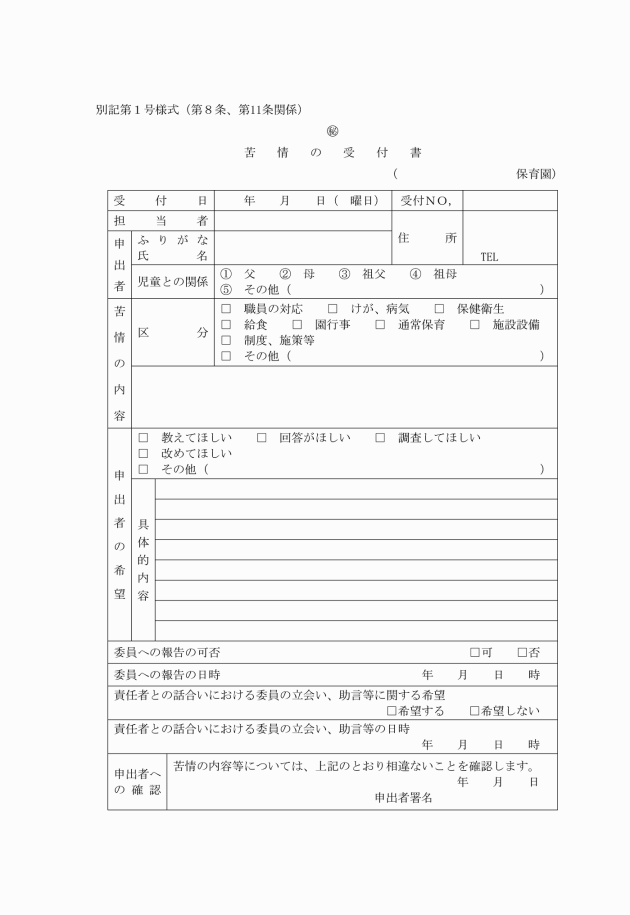 別記第１号様式（第８条、第11条関係）
㊙
苦情の受付書
（　　　　　　　　　　保育園）
受付日　　年　　月　　日（　曜日）　受付ＮＯ，
担当者
住所
TEL
申出者
ふりがな
氏名
児童との関係
①　父　　②　母　　③　祖父　　④　祖母
⑤　その他（　　　　　　　　　　）
苦情の内容
区分
□　職員の対応　　□　けが、病気　　□　保健衛生
□　給食　　□　園行事　　□　通常保育　　□　施設設備
□　制度、施策等
□　その他（　　　　　　　　　　）
申出者の希望
□　教えてほしい　　□　回答がほしい　　□　調査してほしい
□　改めてほしい
□　その他（　　　　　　　　　　）
具体的内容
委員への報告の可否　　□可　　□否
委員への報告の日時　　年　　月　　日　　時
責任者との話合いにおける委員の立会い、助言等に関する希望
□希望する　　□希望しない
責任者との話合いにおける委員の立会い、助言等の日時
年　　月　　日　　時
申出者へ
の確認
苦情の内容等については、上記のとおり相違ないことを確認します。
年　　月　　日
申出者署名